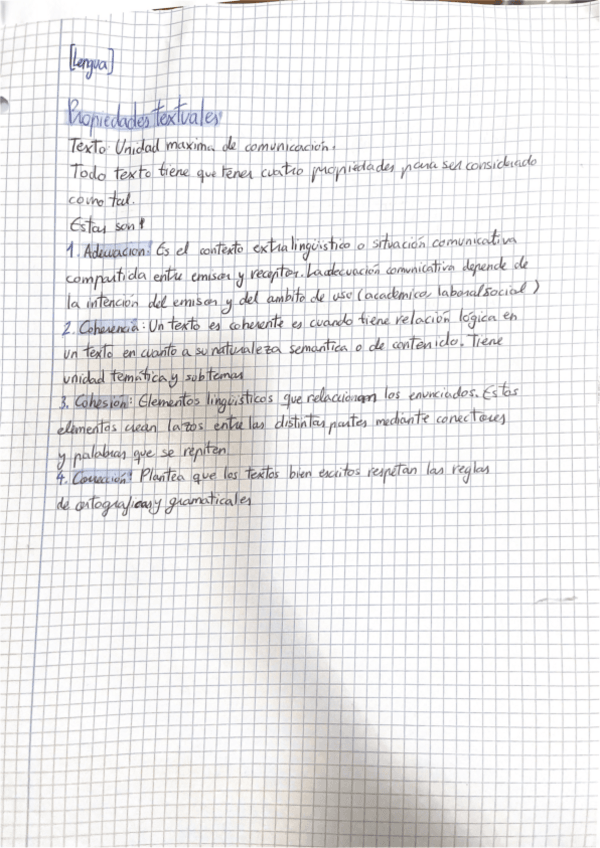 [Lengua]
Propiedades textuales
Texto: Unidad maxima de comunicación.
Todo texto tiene que tener cuatro propiedades para ser considerado
como tal.
Estas son:
1. Adecuacion: Es el contexto extralingüistico o situación comunicativa
compartida entre emisor y receptor. La adecuación comunicativa depende de
la intención del emisor y del ambito de uso (académico, laboral, social)
2. Coherencia: Un texto es coherente es cuando tiene relación lógica en
un texto en cuanto a su naturaleza semantica o de contenido. Tiene
unidad temática y subtemas
3. Cohesión: Elementos lingüísticos que relaccionan los enunciados. Estos
elementos crean lazos entre las distintas partes mediante conectores
y palabras que se repiten.
4. Corrección: Plantea que los textos bien escritos respetan las reglas
de ortograficas y gramaticales